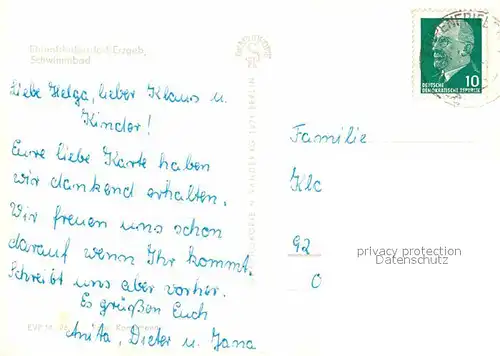 Schwimmbad
Liebe Helga, lieber Klaus u.
Kinder!
Eure liebe Karte haben
wir dankend erhalten.
Wir freuen uns schon
darauf wenn Ihr kommt.
Schreibt uns aber vorher.
Es grüßen Euch
Anita, Dieter u. Jana
10
DEUTSCHE
DEMOKRATISCHE REPUBLIK
Familie
Klc
92
O
privacy protection
Datenschutz